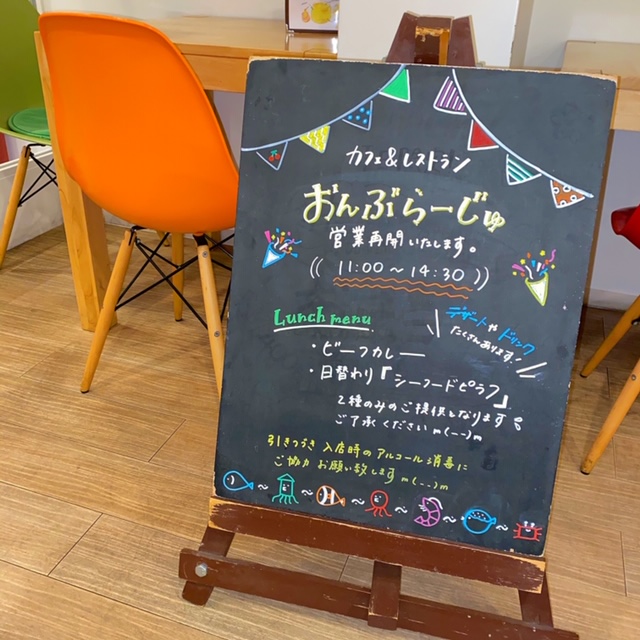 カフェ&レストラン
おんぶらーじゅ
営業再開いたします。
(( 11:00～14:30 ))
Lunch menu
デザートやドリンク
たくさんあります!
・ビーフカレー
・日替わり『シーフードピラフ』
2種のみのご提供となります。
ご了承くださいm(--)m
引きつづき 入店時のアルコール消毒に
ご協力お願い致しますm(--)m